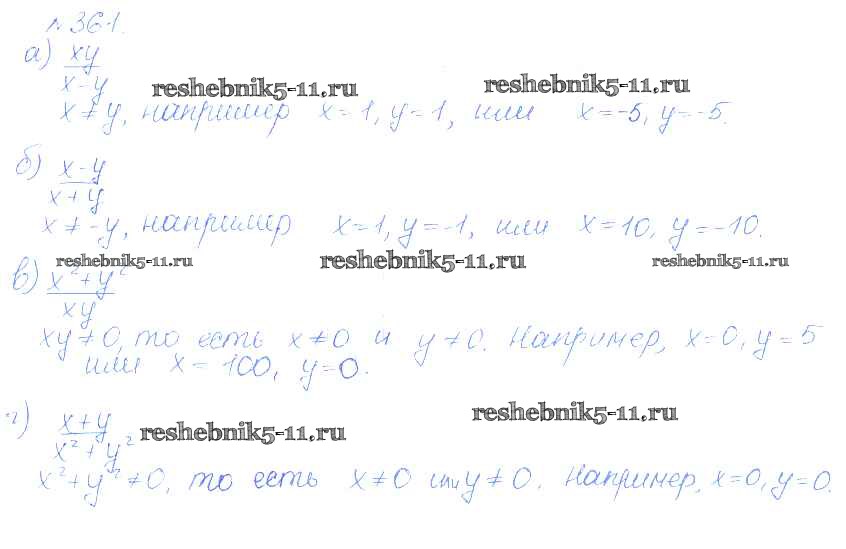 № 361.
а) xy
x-y
reshebnik5-11.ru
reshebnik5-11.ru
x ≠ y, например x = 1, y = 1, или x = -5, y = -5.
б) x-y
x+y
x ≠ -y, например x = 1, y = -1, или x = 10, y = -10.
reshebnik5-11.ru
reshebnik5-11.ru
reshebnik5-11.ru
в) x² + y²
xy
xy ≠ 0, то есть x ≠ 0 и y ≠ 0. Например, x = 0, y = 5
или x = 100, y = 0.
г) x+y
x² + y²
reshebnik5-11.ru
reshebnik5-11.ru
x² + y² ≠ 0, то есть x ≠ 0 или y ≠ 0. Например, x = 0, y = 0.